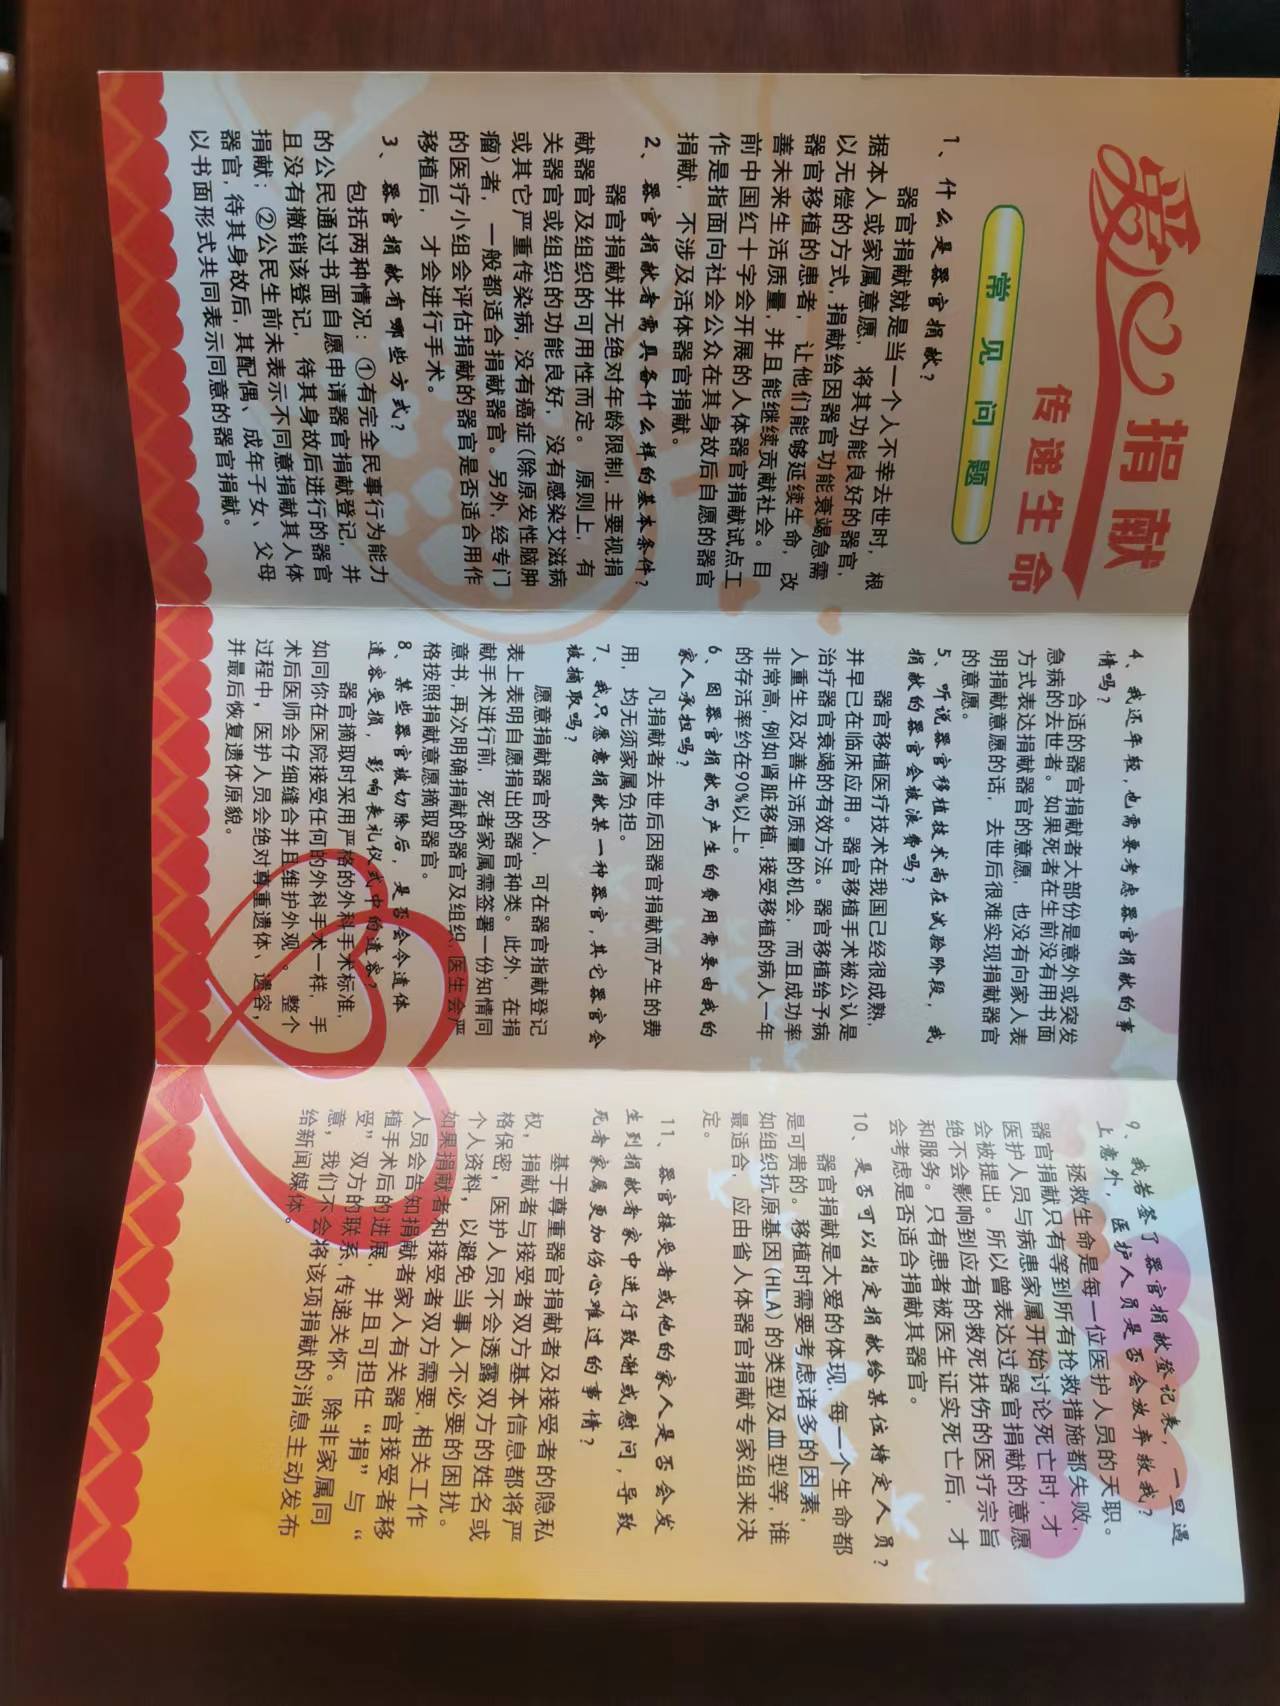 爱心捐献
传递生命
常见问题
1、什么是器官捐献？
器官捐献就是当一个人不幸去世时，根
据本人或家属意愿，将其功能良好的器官，
以无偿的方式，捐献给因器官功能衰竭急需
器官移植的患者，让他们能够延续生命，改
善未来生活质量，并且能继续贡献社会。目
前中国红十字会开展的人体器官捐献试点工
作是指面向社会公众在其身故后自愿的器官
捐献，不涉及活体器官捐献。
2、器官捐献者需具备什么样的基本条件？
器官捐献并无绝对年龄限制，主要视捐
献器官及组织的可用性而定。原则上，有
关器官或组织的功能良好，没有感染艾滋病
或其它严重传染病，没有癌症（除原发性脑肿
瘤）者，一般都适合捐献器官。另外，经专门
的医疗小组会评估捐献的器官是否适合用作
移植后，才会进行手术。
3、器官捐献有哪些方式？
包括两种情况：①有完全民事行为能力
的公民通过书面自愿申请器官捐献登记，并
且没有撤销该登记，待其身故后进行的器官
捐献；②公民生前未表示不同意捐献其人体
器官，待其身故后，其配偶、成年子女、父母
以书面形式共同表示同意的器官捐献。
4、我还年轻，也需要考虑器官捐献的事
情吗？
合适的器官捐献者大部份是意外或突发
急病的去世者。如果死者在生前没有用书面
方式表达捐献器官的意愿，也没有向家人表
明捐献意愿的话，去世后很难实现捐献器官
的意愿。
5、听说器官移植技术尚在试验阶段，我
捐献的器官会被浪费吗？
器官移植医疗技术在我国已经很成熟，
并早已在临床应用。器官移植手术被公认是
治疗器官衰竭的有效方法。器官移植给予病
人重生及改善生活质量的机会，而且成功率
非常高，例如肾脏移植，接受移植的病人一年
的存活率约在90%以上。
6、因器官捐献而产生的费用需要由我的
家人承担吗？
凡捐献者去世后因器官捐献而产生的费
用，均无须家属负担。
7、我只愿意捐献某一种器官，其它器官会
被摘取吗？
愿意捐献器官的人，可在器官捐献登记
表上表明自愿捐出的器官种类。此外，在捐
献手术进行前，死者家属需签署一份知情同
意书，再次明确捐献的器官及组织，医生会严
格按照捐献意愿摘取器官。
8、某些器官被切除后，是否会令遗体
遗容受损，影响丧礼仪式中的遗容？
器官摘取时采用严格的外科手术标准，
如同你在医院接受任何的外科手术一样，手
术后医师会仔细缝合并且维护外观。整个
过程中，医护人员会绝对尊重遗体、遗容，
并最后恢复遗体原貌。
9、我若签了器官捐献登记表，一旦遇
上意外，医护人员是否会放弃救我？
拯救生命是每一位医护人员的天职。
器官捐献只有等到所有抢救措施都失败，
医护人员与病患家属开始讨论死亡时，才
会被提出。所以曾表达过器官捐献的意愿
绝不会影响到应有的救死扶伤的医疗宗旨
和服务。只有患者被医生证实死亡后，才
会考虑是否适合捐献其器官。
10、是否可以指定捐献给某位特定人员？
器官捐献是大爱的体现，每一个生命都
是可贵的。移植时需要考虑诸多的因素，
如组织抗原基因（HLA）的类型及血型等，谁
最适合，应由省人体器官捐献专家组来决
定。
11、器官接受者或他的家人是否会发
生到捐献者家中进行致谢或慰问，导致
死者家属更加伤心难过的事情？
基于尊重器官捐献者及接受者的隐私
权，捐献者与接受者双方基本信息都将严
格保密，医护人员不会透露双方的姓名或
个人资料，以避免当事人不必要的困扰。
如果捐献者和接受者双方需要，相关工作
人员会告知捐献者家人有关器官接受者移
植手术后的进展，并且可担任“捐”与“
受”双方的联系，传递关怀。除非家属同
意，我们不会将该项捐献的消息主动发布
给新闻媒体。